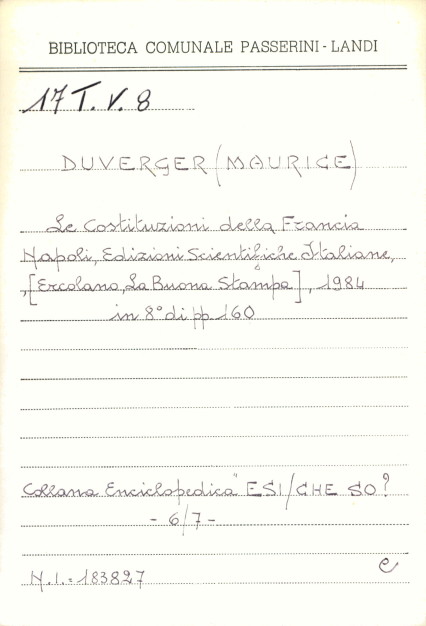 BIBLIOTECA COMUNALE PASSERINI - LANDI
17 T. V. 8
DUVERGER (MAURICE)
Le Costituzioni della Francia
Napoli, Edizioni Scientifiche Italiane,
,[Ercolano, La Buona Stampa], 1984
in 8° di pp 160
Collana Enciclopedica " ESI/CHE SO?
- 6/7 -
N.I. = 183827
e